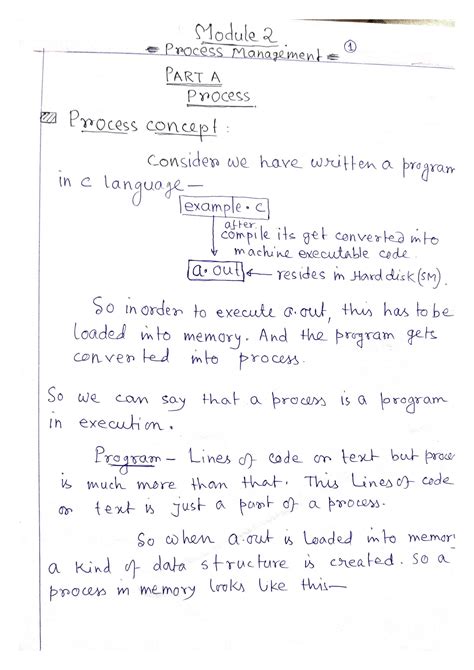 Module 2
Process Management
1
PART A
Process
Process concept :
Consider we have written a program
in c language —
example.c
after
compile its get converted into
machine executable code.
a.out ← resides in Hard disk (SM).
So in order to execute a.out, this has to be
loaded into memory. And the program gets
converted into process.
So we can say that a process is a program
in execution.
Program – Lines of code or text but proce
is much more than that. This Lines of code
or text is just a part of a process.
So when a.out is loaded into memor
a kind of data structure is created. So a
process in memory looks like this—